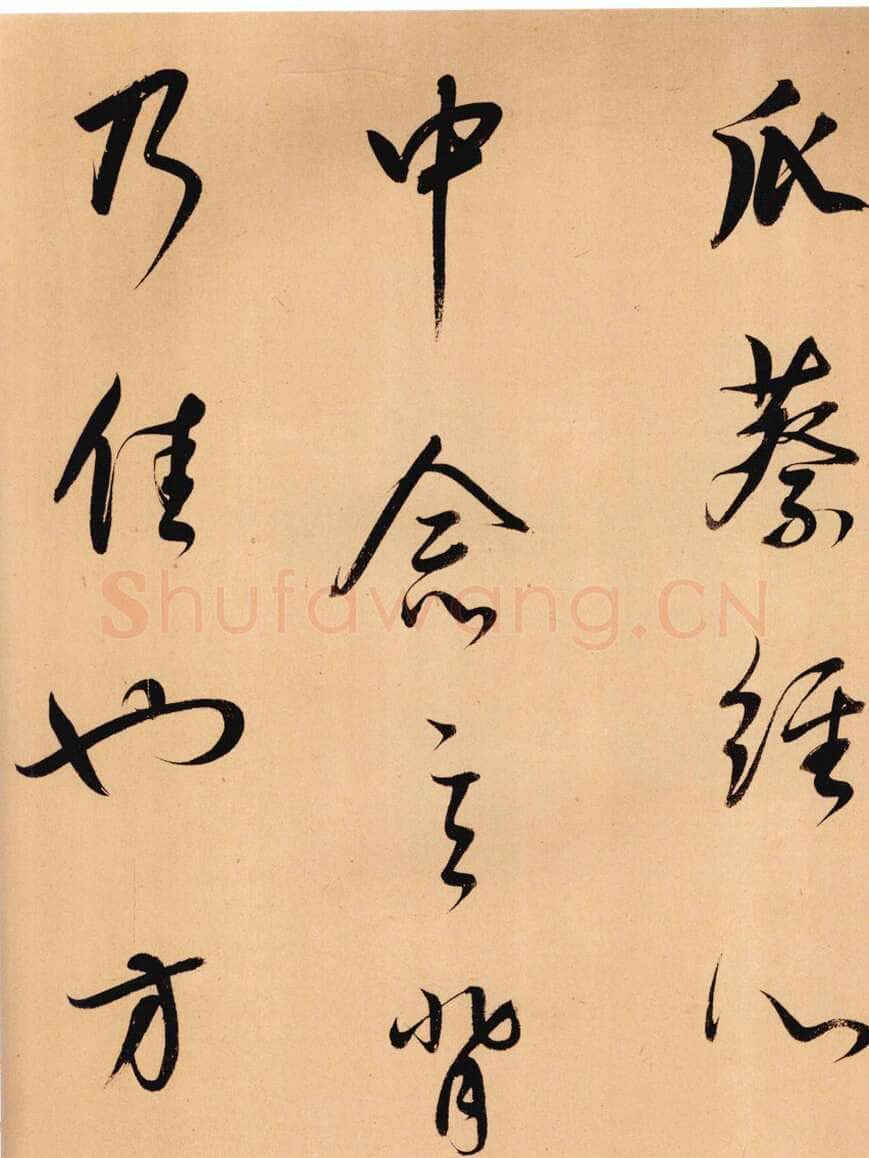 爪蔡經心
中念言背
乃佳也方
Shufawang.CN